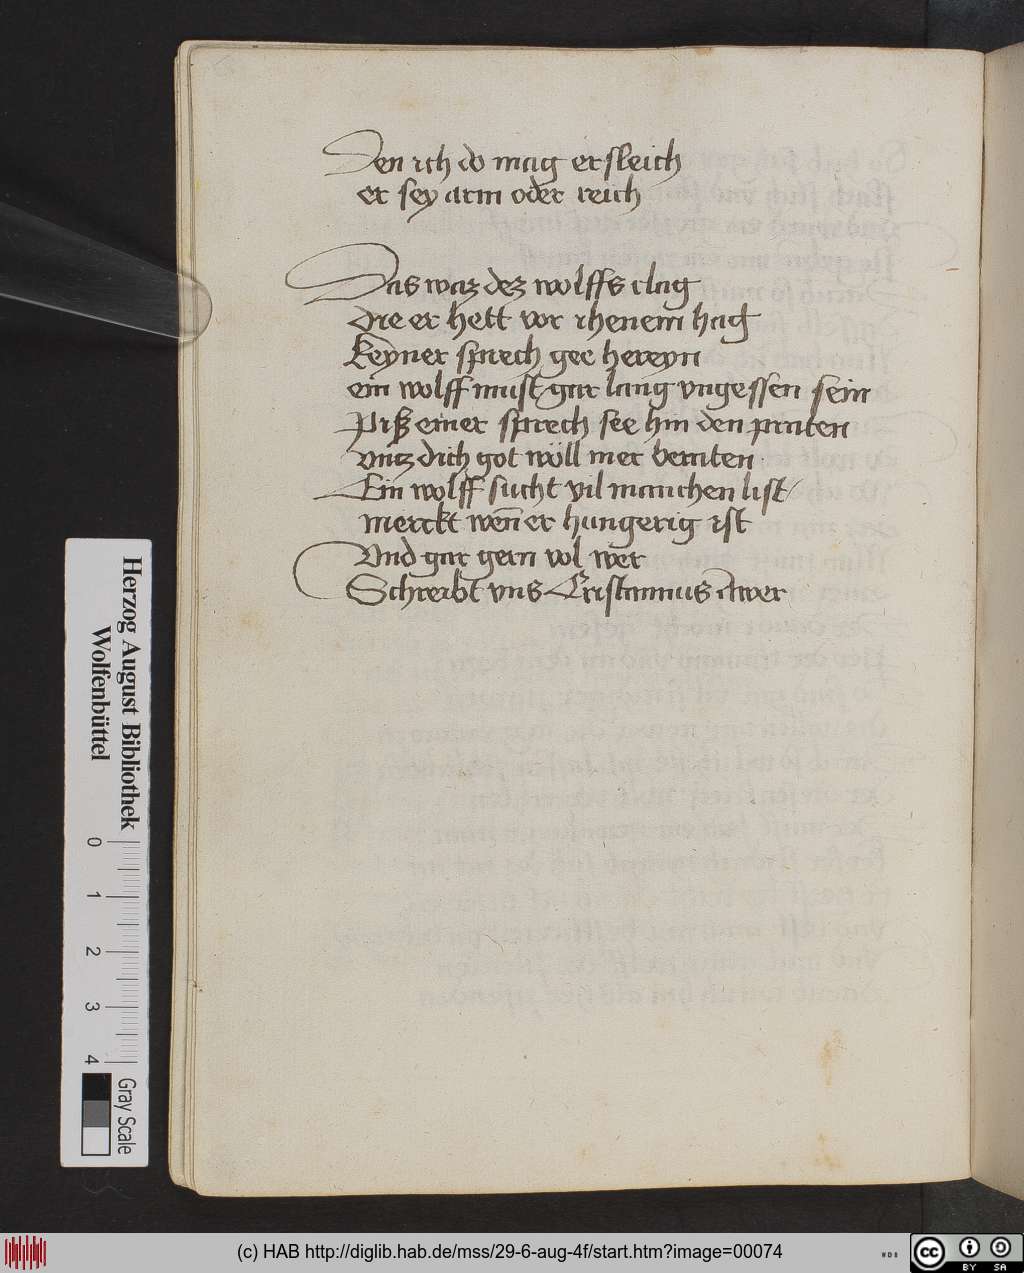 Den ich do mag ersleich
er sey arm oder reich
Das waz dez wolffs clag
die er hett vor ihenem hag
Keyner sprech gee hereyn
ein wolff must gar lang vngessen sein
Piß einer sprech see hin den praten
vntz dich got wöll mer beraten
Ein wolff sucht vil manchen list
merckt wen̄ er hungerig ist
Vnd gar gern vol wer
Schreibt vns Cristannus Awer
Herzog August Bibliothek
Wolfenbüttel
0 1 2 3 4
Gray Scale
(c) HAB http://diglib.hab.de/mss/29-6-aug-4f/start.htm?image=00074
WDB
cc BY SA